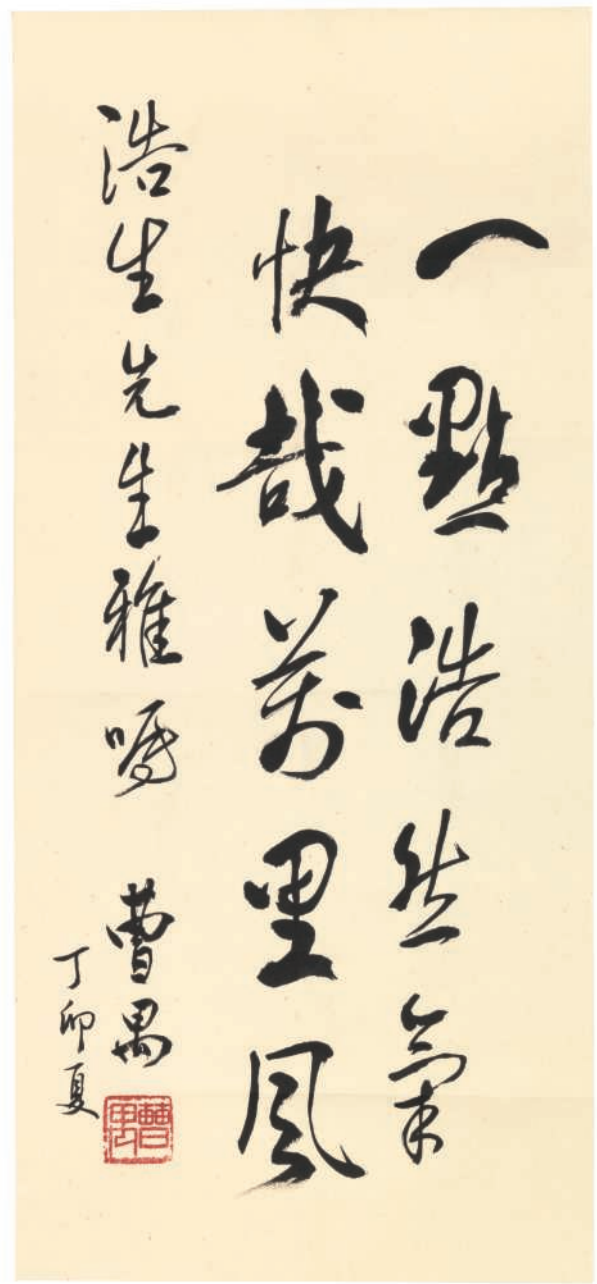 一點浩然氣
快哉萬里風
浩生先生雅囑
曹禺
丁卯夏
曹禺